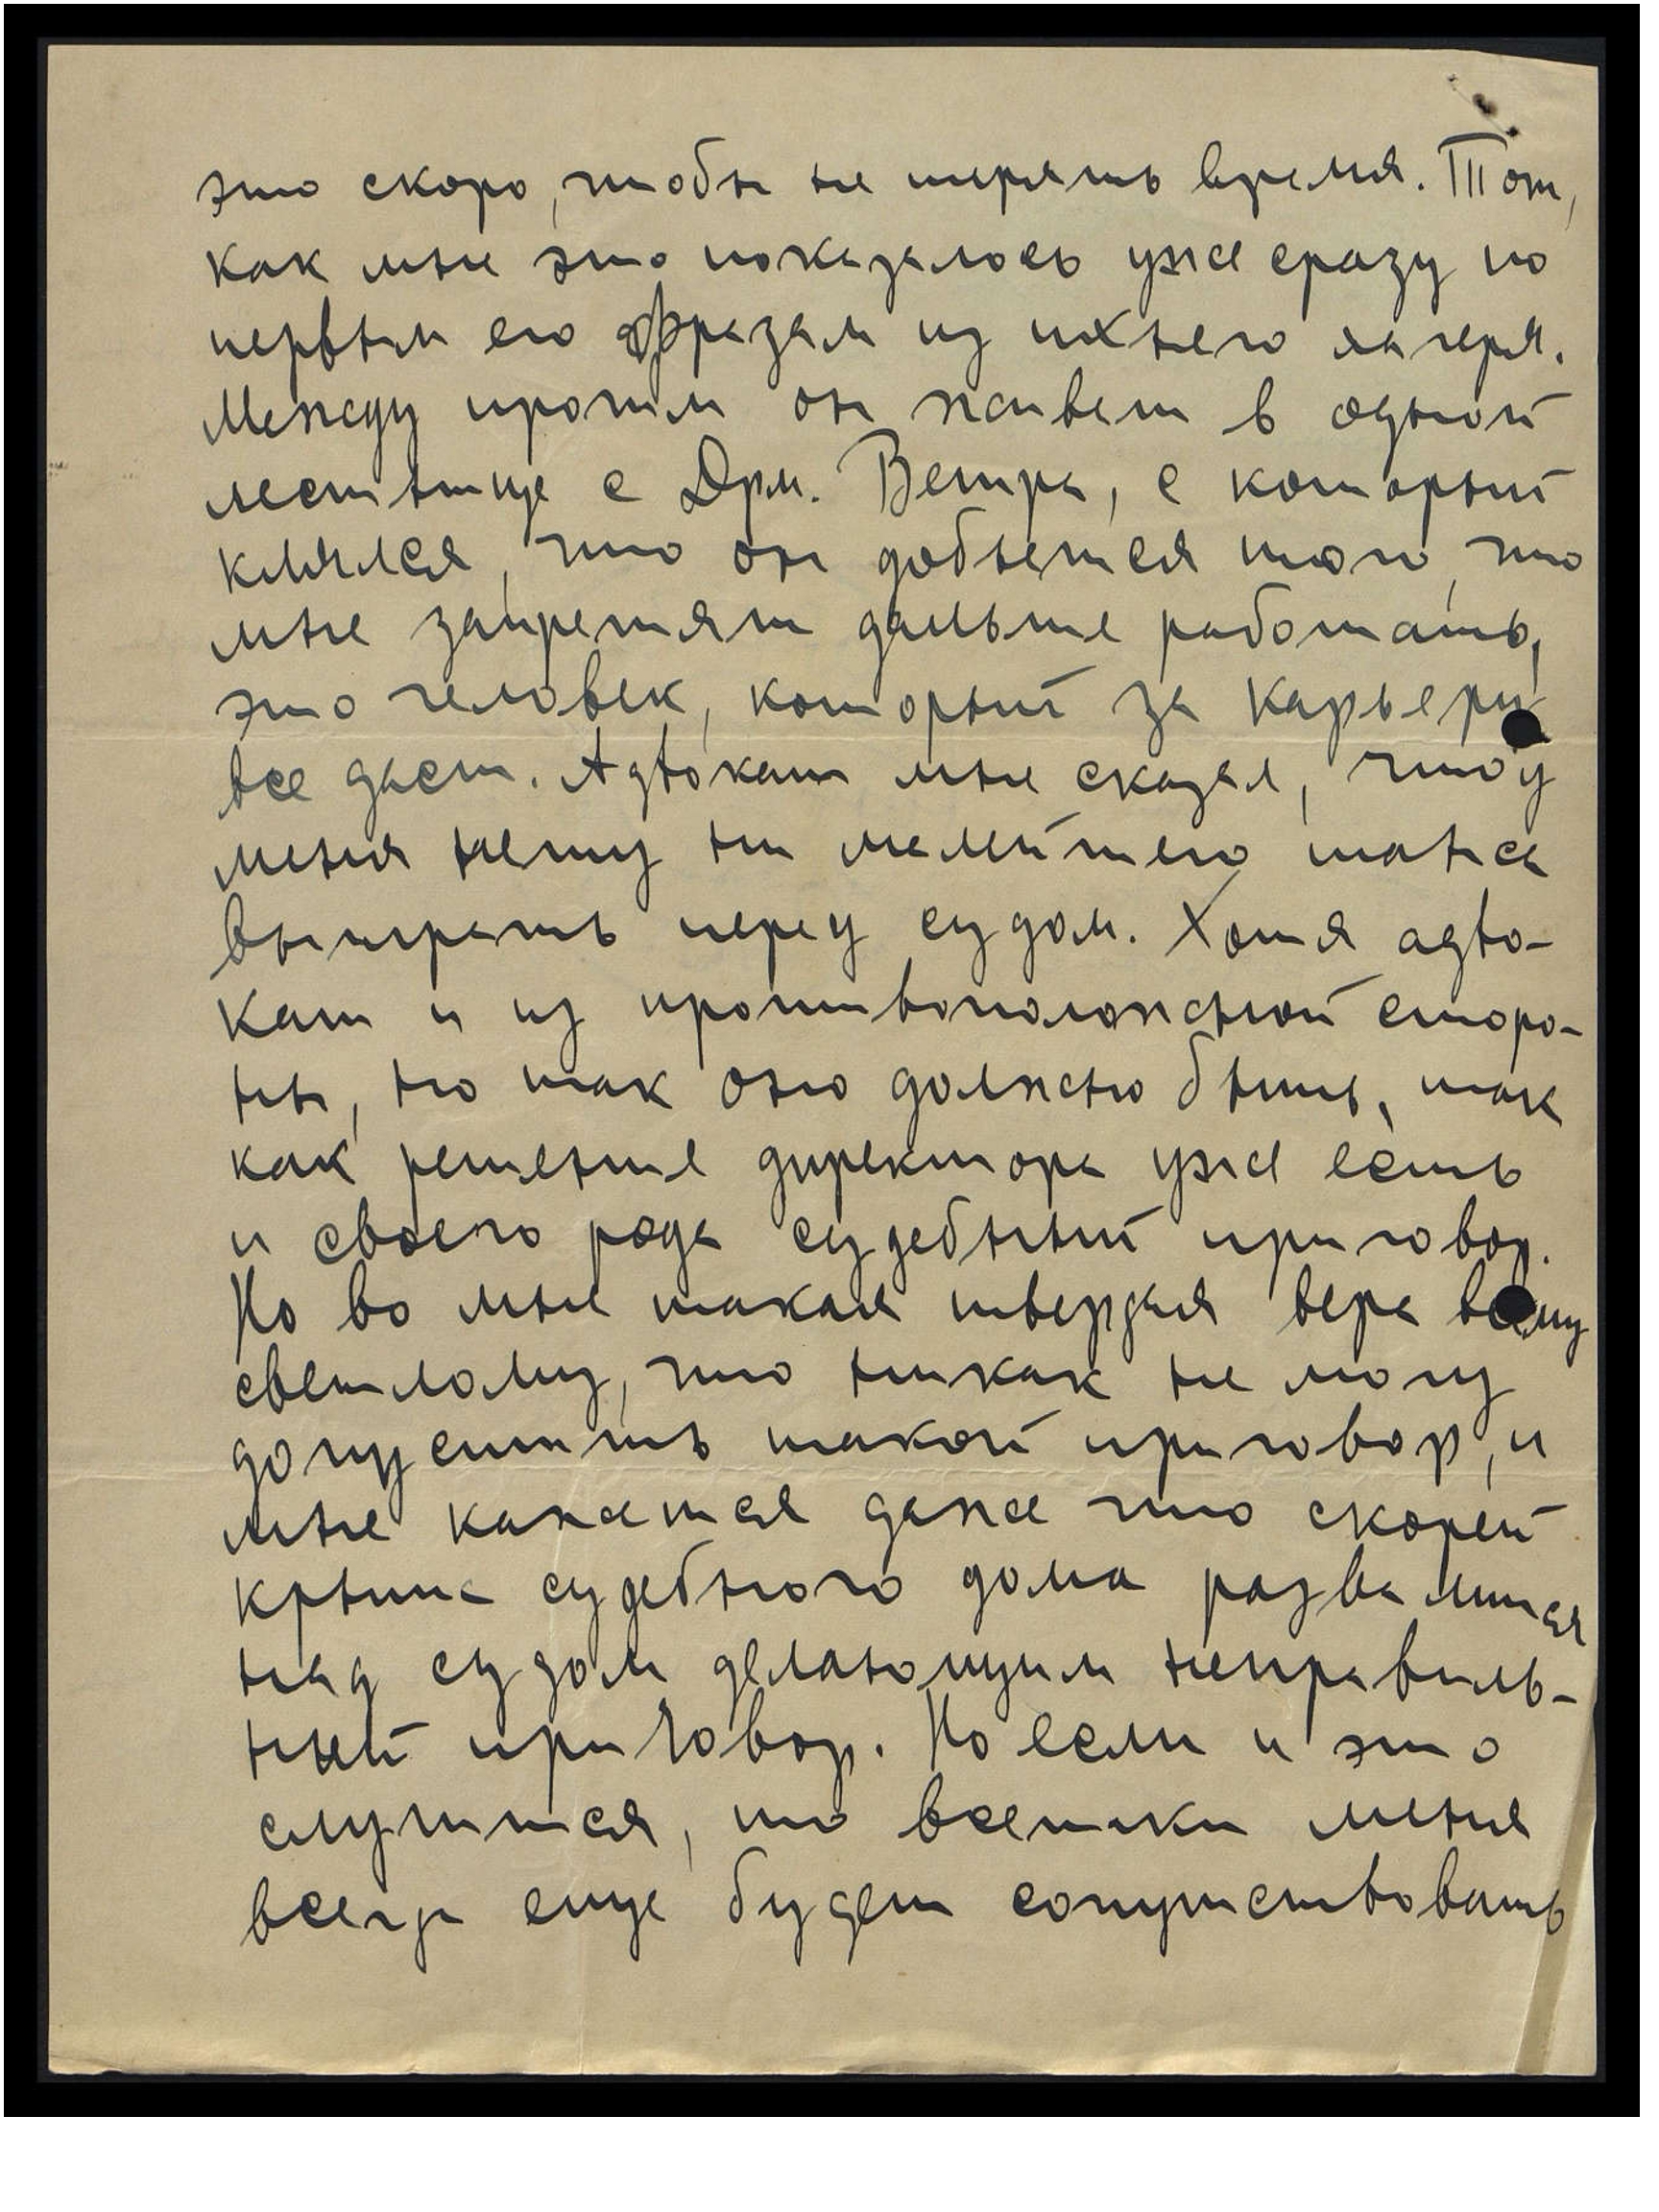 это скоро, чтобы не терять время. Тот,
как мне это показалось уже сразу по
первым его фразам из ихнего лагеря.
Между протим он живет в одной
лестнице с Дрм. Ветра, с который
клялся, что он добьется того, что
мне запретят дальше работать,
это человек, который за карьеру
все даст. Адвокат мне сказал, что у
меня нету ни малейшего шанса
выиграть перед судом. Хотя адво-
кат и из противоположной сторо-
ны, но так оно должно быть, так
как решение директора уже есть
и своего рода судебный приговор.
Но во мне такая твердая вера всему
светлому, что никак не могу
допустить такой приговор, и
мне кажется даже что скорей
крыша судебного дома развалится
над судом делающим неправиль-
ный приговор. Но если и это
случится, то всетаки меня
всегда еще будет сопутствовать